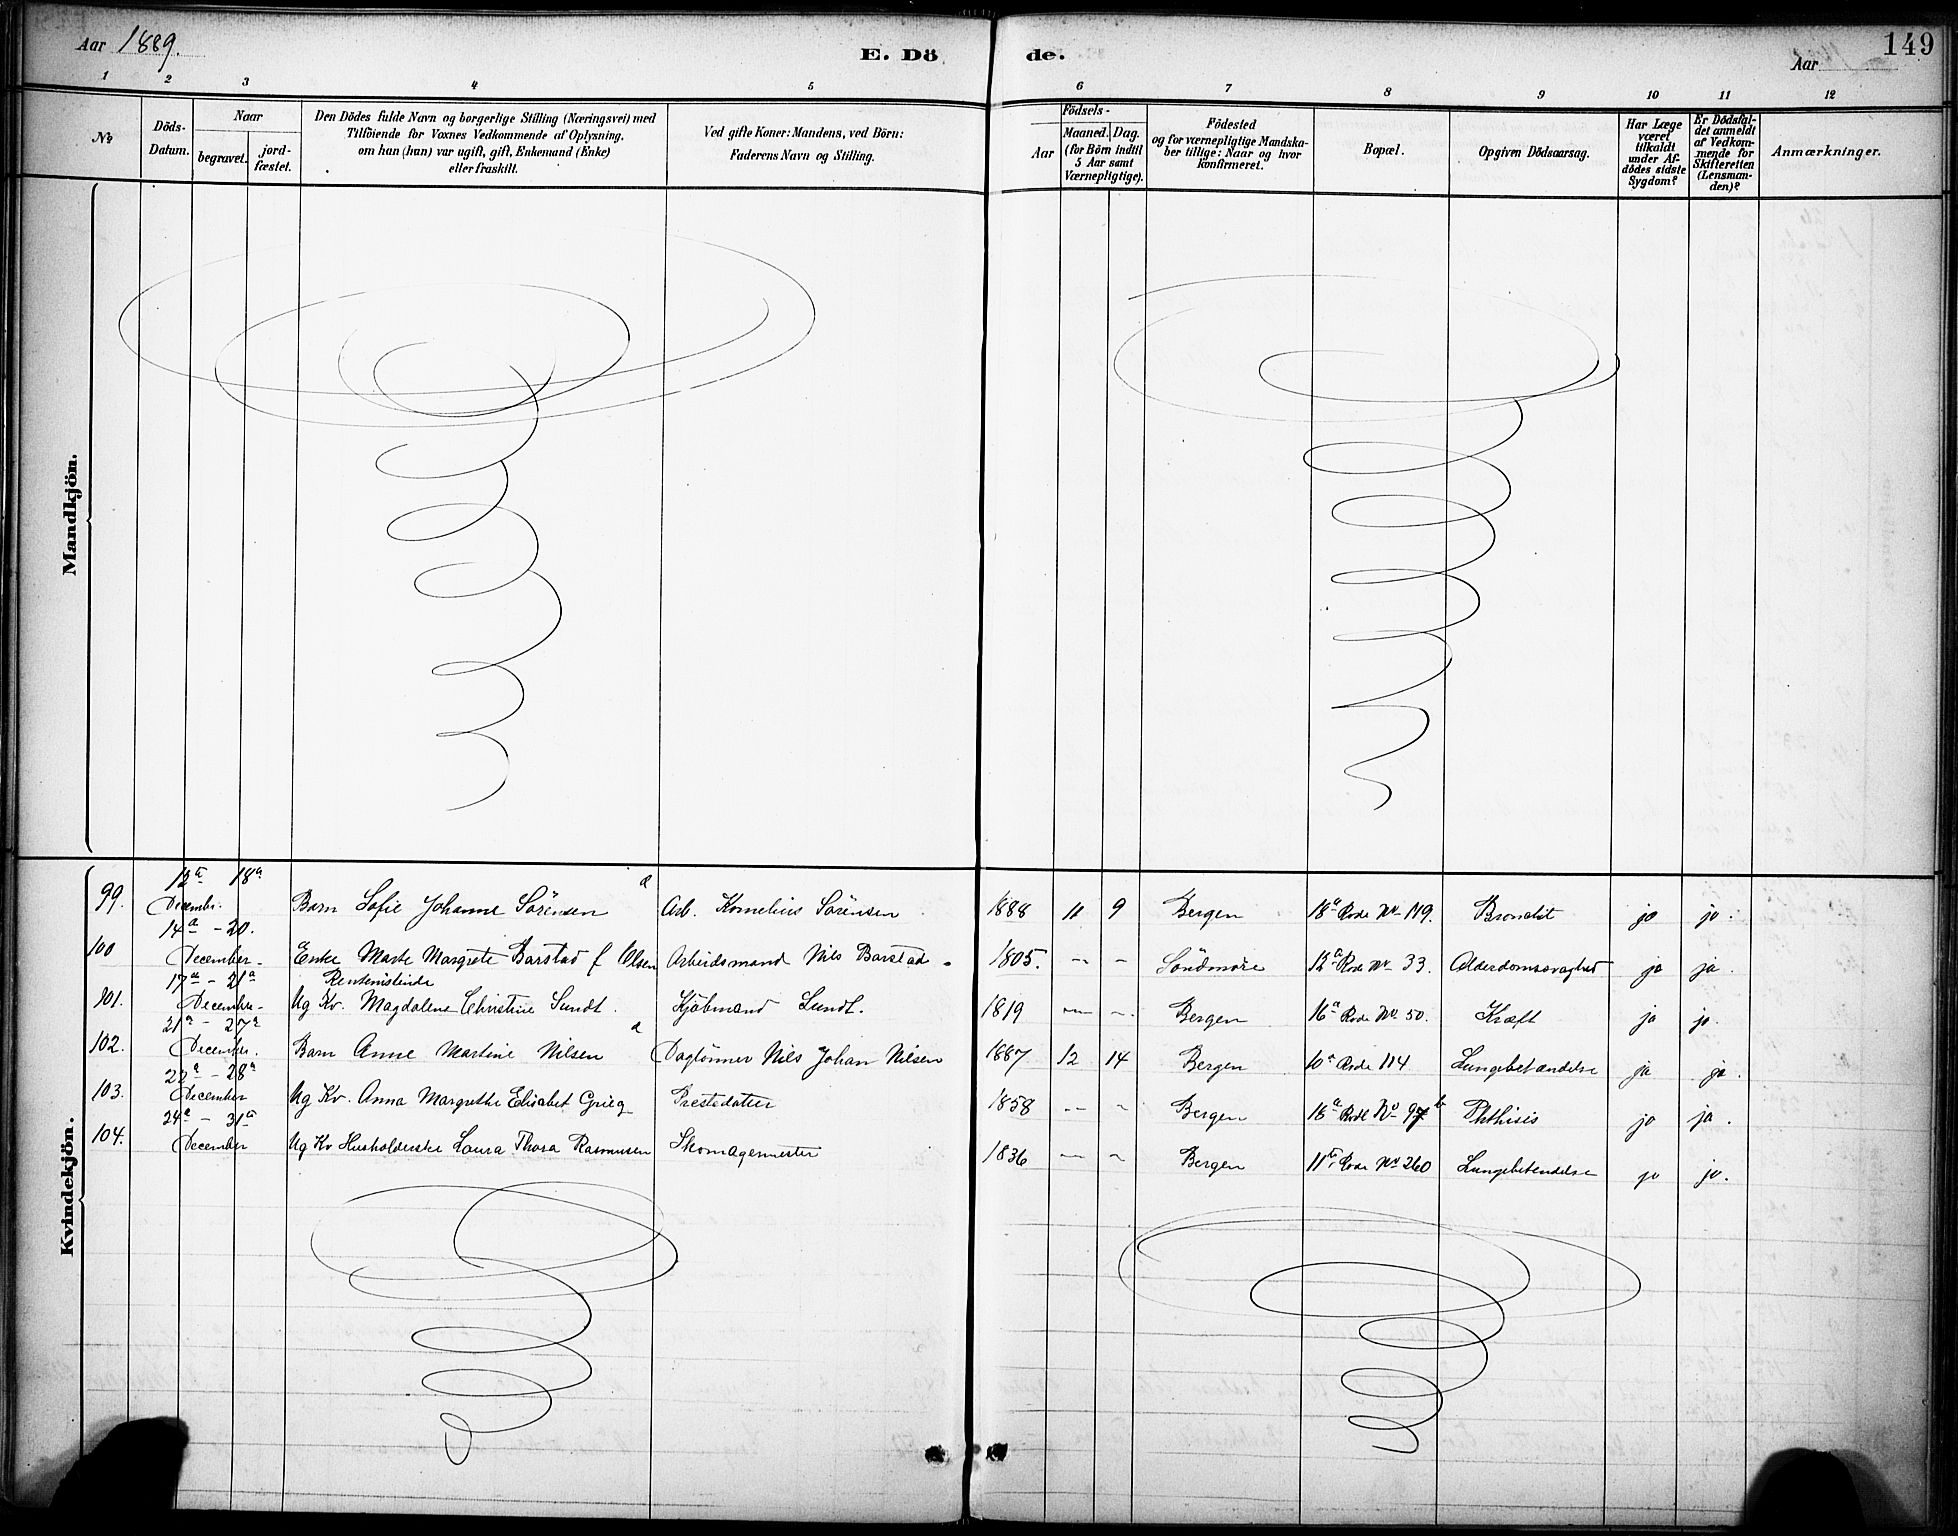 Aar 1889.
E. Dö
de.
Aar
149
1 2 3 4 5 6 7 8 9 10 11 12
No
Döds-
Datum.
Naar
begravet.
jord-
fæstet.
Den Dödes fulde Navn og borgerlige Stilling (Næringsvei) med
Tilföiende for Voxnes Vedkommende af Oplysning,
om han (hun) var ugift, gift, Enkemand (Enke)
eller fraskilt.
Ved gifte Koner: Mandens, ved Börn:
Faderens Navn og Stilling.
Aar
Födsels-
Maaned. Dag.
(for Börn indtil
5 Aar samt
Værnepligtige).
Födested
og for værnepligtige Mandska-
ber tillige: Naar og hvor
konfirmeret.
Bopæl.
Opgiven Dödsaarsag.
Har Læge
været
tilkaldt
under Af-
dödes sidste
Sygdom?
Er Dödsfal-
det anmeldt
af Vedkom-
mende for
Skifteretten
(Lensman-
den)?
Anmærkninger.
Mandkjön.
Kvindekjön.
12te 18de
99. Decembr. Barn Sofie Johanne Sörensen Arb. Kornelius Sörensen 1888 11 9 Bergen 18de Rode No 119. Bronchit ja ja.
14de - 20.
100 December - Enke Marte Margrete Barstad f Olsen Arbeidsmand Nils Barstad. 1805. - - Söndmöre 12de Rode No 33. Alderdomssvaghed ja ja.
17de - 21de Rentenistinde
101. December - Ug Kv. Magdalene Christine Sundt. Kjöbmand Sundt. 1819 - - Bergen 16de Rode No 50. Kræft ja ja.
21de - 27de
102. December. Barn Anne Martine Nilsen Daglönner Nils Johan Nilsen 1887 12 14 Bergen 10de Rode 114 Lungebetændelse ja ja.
22de - 28de
103. December Ug Kv. Anna Margrethe Elisabet Grieg Prestedatter 1858 - - Bergen 18de Rode No 97 b Phthisis ja ja.
24de - 31te
104. December Ug Kv Husholderske Laura Thora Rasmusen Skomagermester 1836 - - Bergen 11te Rode No 260 Lungebetendelse ja ja.